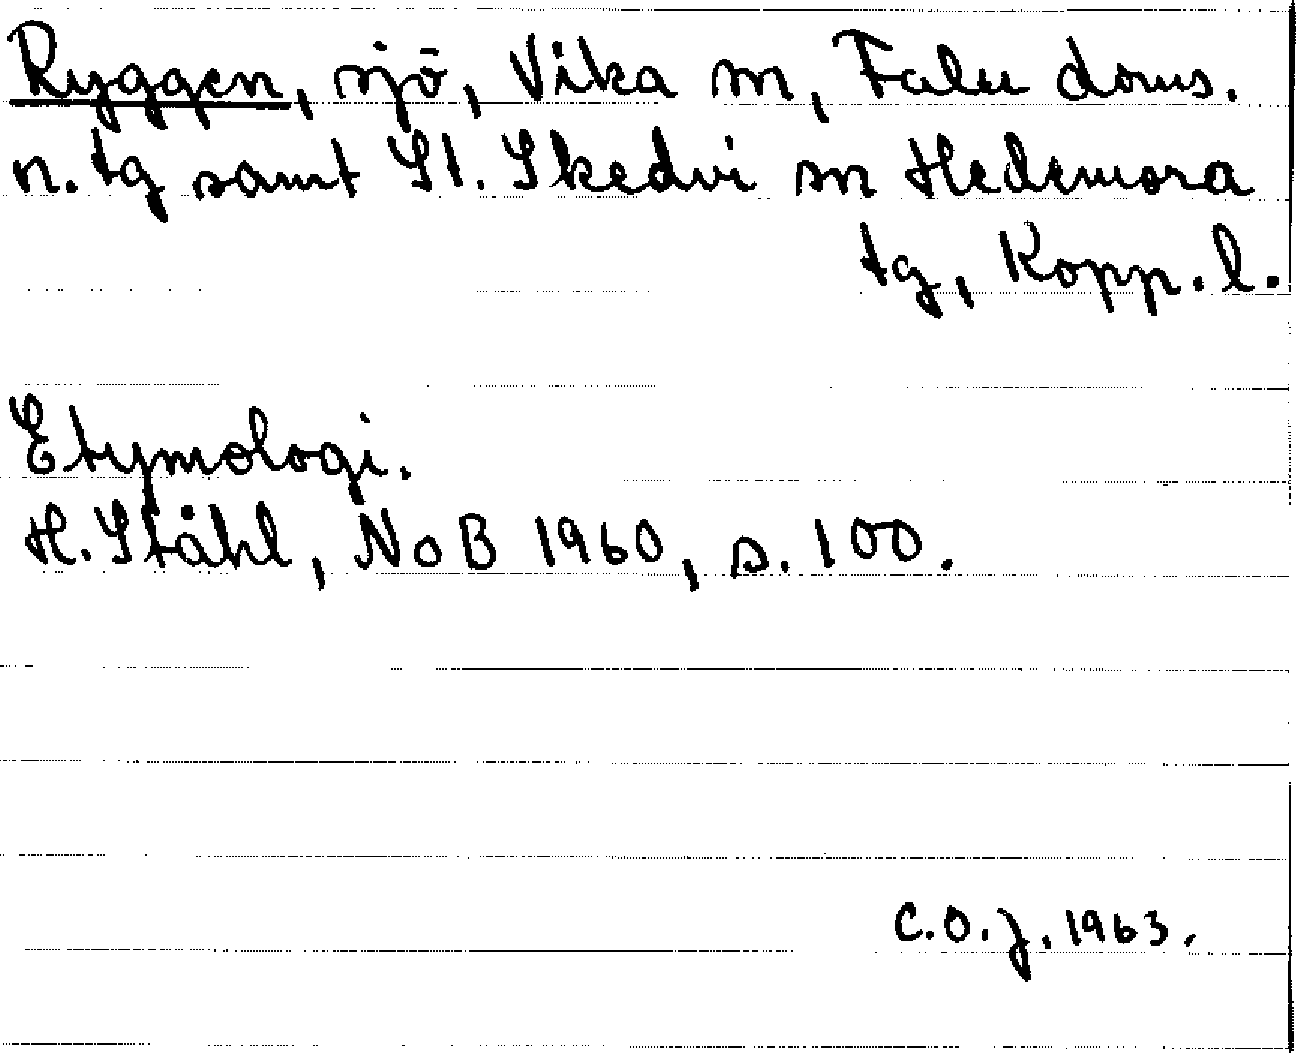 Ryggen, sjö, Vika sn, Falu doms.
n. tg samt St. Skedvi sn Hedemora
tg, Kopp. l.
Etymologi.
H. Ståhl, NoB 1960, s. 100.
C.O.J. 1963.